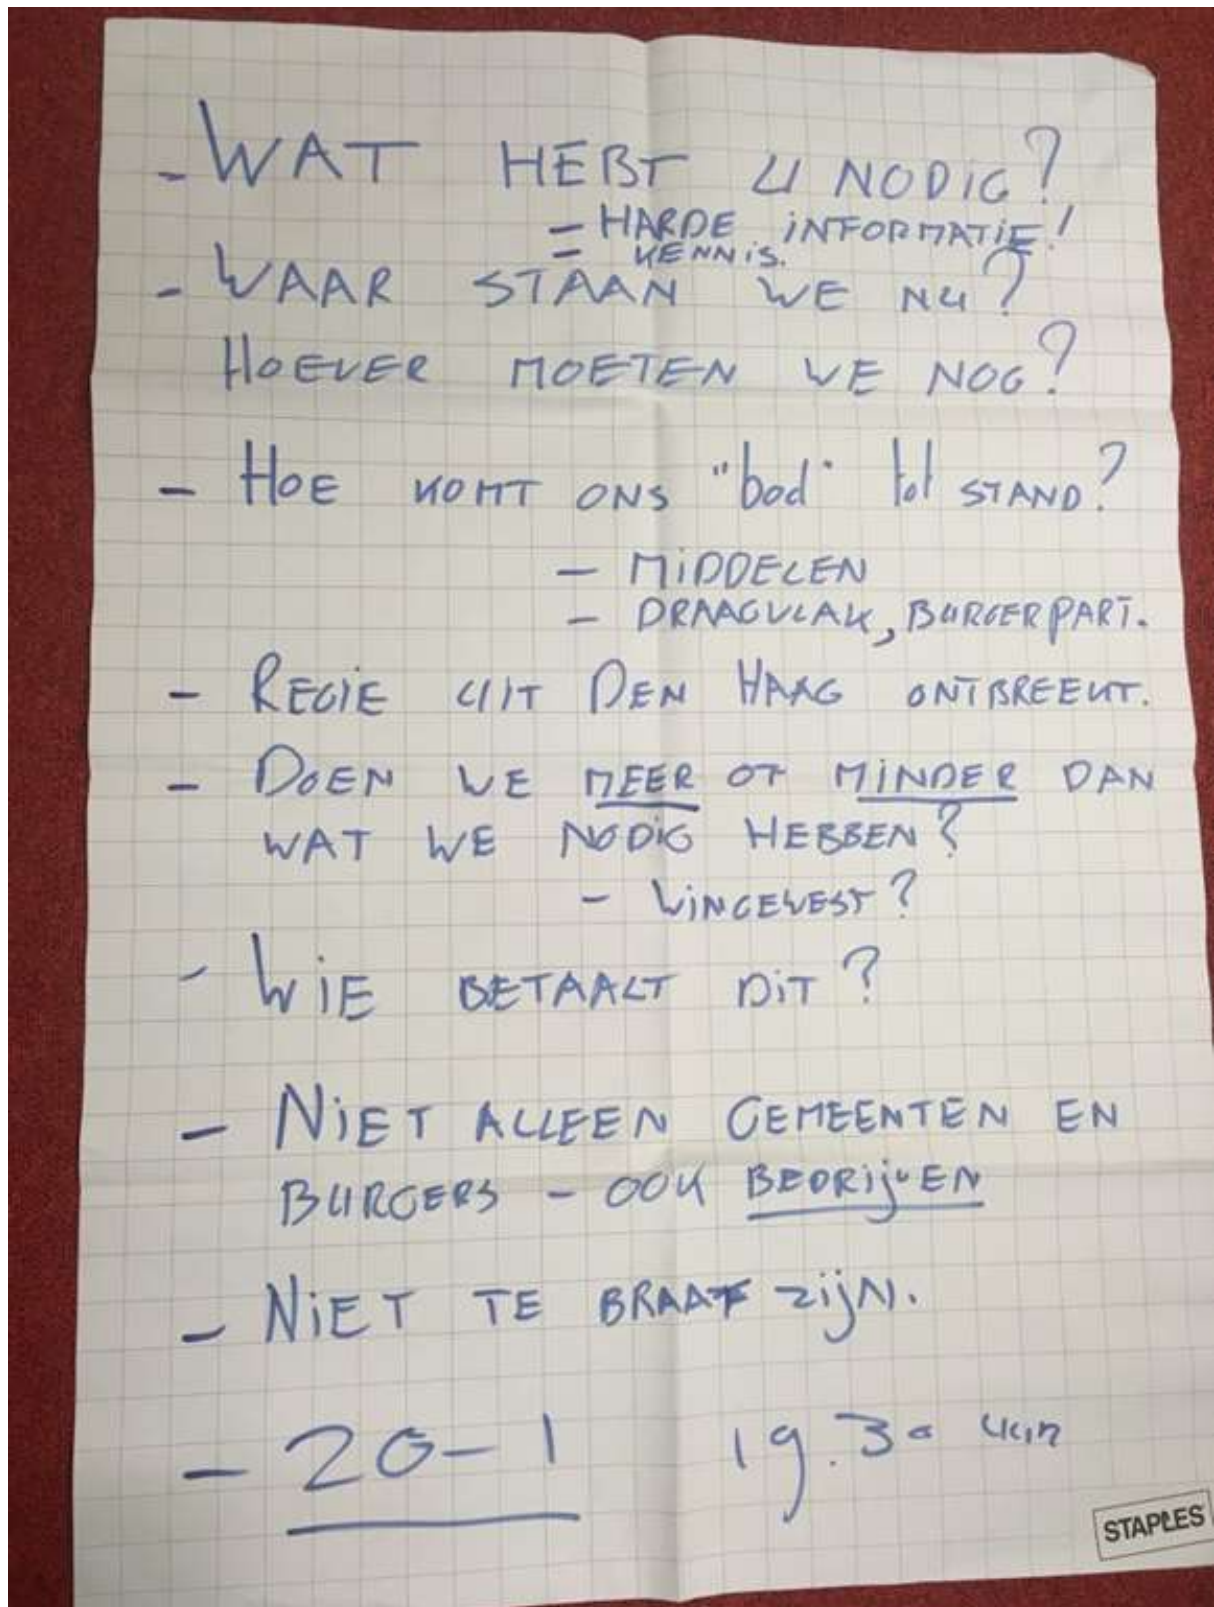 - WAT HEBT U NODIG?
- HARDE INFORMATIE!
- KENNIS.
- WAAR STAAN WE NU?
HOEVER MOETEN WE NOG?
- HOE KOMT ONS "bod" tot STAND?
- MIDDELEN
- DRAAGVLAK, BURGERPART.
- REGIE UIT DEN HAAG ONTBREEKT.
- DOEN WE MEER OF MINDER DAN
WAT WE NODIG HEBBEN?
- WINGEWEST?
- WIE BETAALT DIT?
- NIET ALLEEN GEMEENTEN EN
BURGERS - OOK BEDRIJVEN
- NIET TE BRAAF ZIJN.
- 20-1 19.30
STAPLES